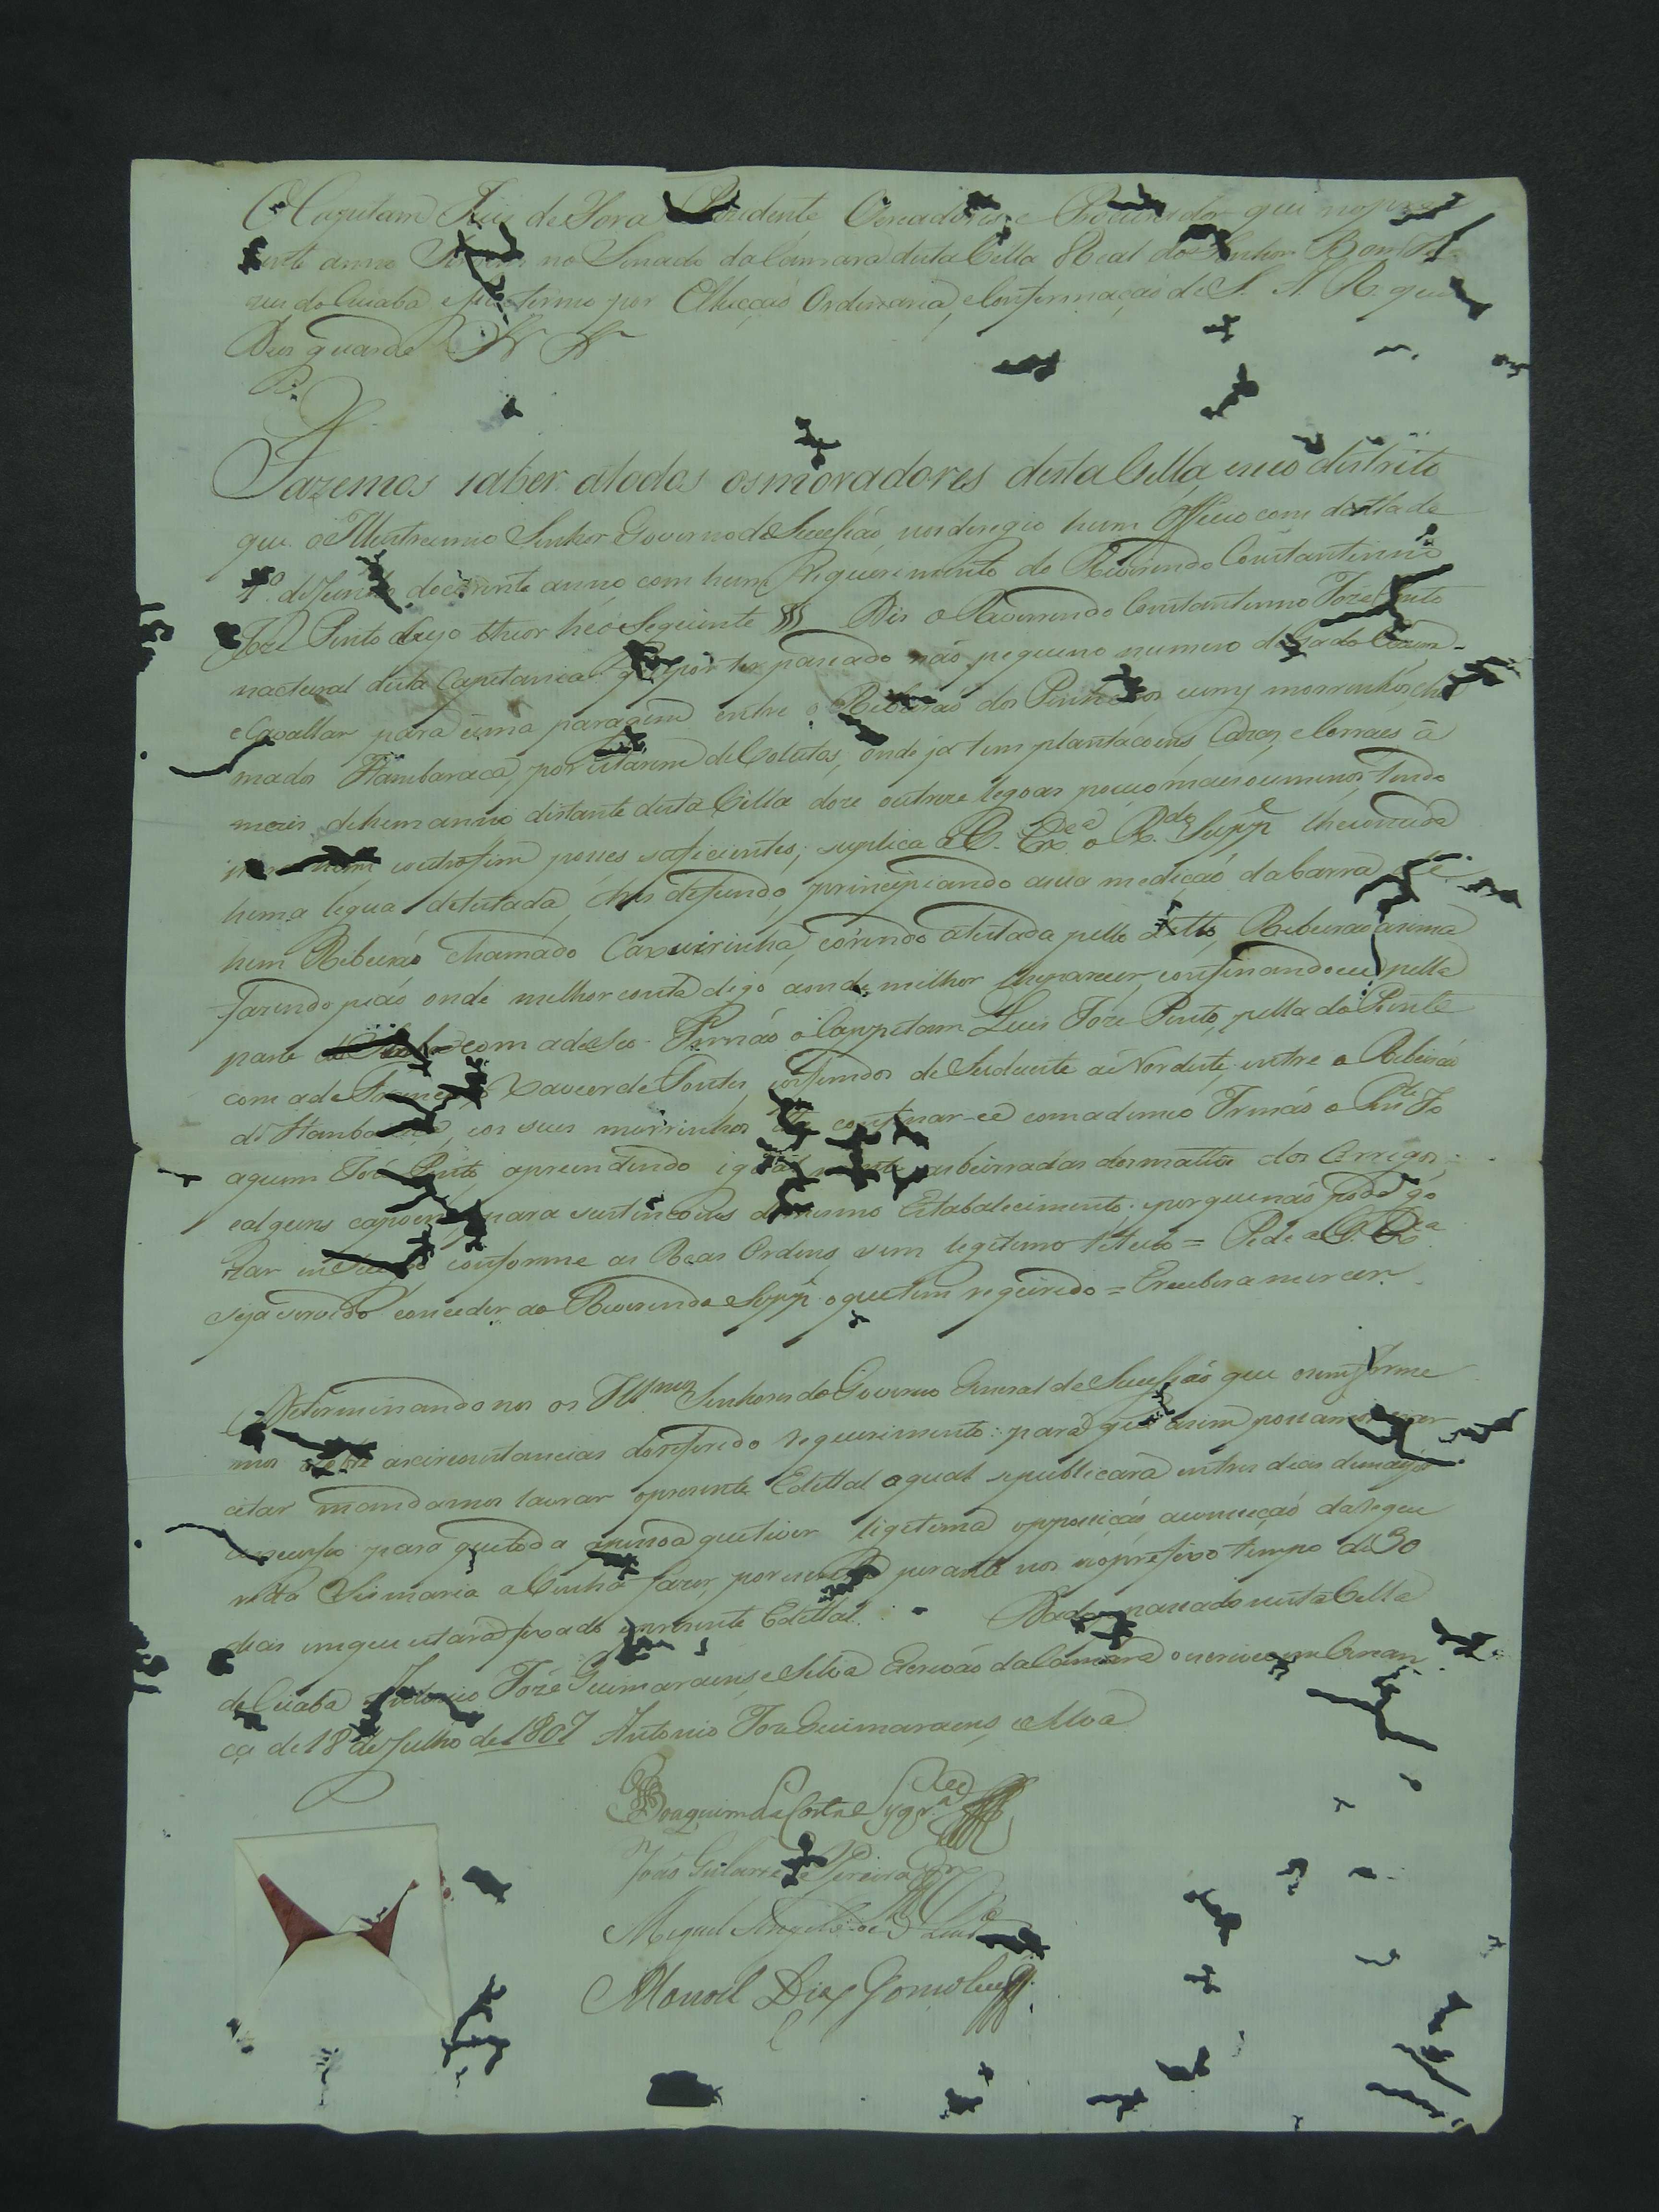 O Capitam Juis de Fora Prezidente Vereadores, e Procurador que no pre
zente anno Servem no Senado da Camara desta Villa Real do Senhor Bom Je
zus do Cuiabá e seu termo por Elleição Ordinaria, e Confirmação de S. A. R. que
Deus guarde
Fazemos saber atodos osmoradores desta Villa, eseo distrito
que o Illustrissimo Senhor Governo de Sucessão, nos deregio hum Officio com datta de
1º de Junho docorrente anno com hum Requerimento do Reverendo Constantinno
Joze Pinto cujo theor hé o Seguinte Dis o Reverendo Constantinno Joze Pinto
nactural desta Capitania que por ter passado não pequeno numero de Gado Vacum
e Cavallar para uma paragem entre o Ribeirão dos Pinheiros, cumj morrinhos, cha
mados Itambaracá, por estarem deVolutos, onde ja tem plantacoens, Cazas, e Corraes á
mais dehum anno distante desta Villa doze outreze legoas pouco mais ou menos, tendo
para outrofim posses soficientes; suplica a V. Exca o Rdo Suppe lhe conceda
huma legua detestada, e tres defundo, principiando asua medicão dabarra de
hum Ribeirão chamado Caxueirinha, corendo atestada pello ditto Ribeirão asima
fazendo pião onde melhor conta digo aonde milhor lheparecer, confinandoce pella
parte com adeSeo Irmão o Cappitam Luis Joze Pinto, pella do Poente
com ade Francisco Xavier de Pontes, cosfundos de Sudueste aoNordeste, entre o Ribeirão
do Itambaracá, cos seus morrinhos the confinar-ce comademeo Irmão o Jo
aquim José Pinto, apreendendo igoal mente asbeirradas dosmattos dos Corrigos,
ealguns capoens para sustincoens domesmo Estabalecimento: porquenão pode go
zar conforme as Reas Ordens, sem legitimo titulo = Pede a V. Exca
seja servido conceder ao Reverendo Suppe oque tem requerido = E recebera mercer.
Determinandonos os Illmos Senhores do Governo General de Sucessão que oinforme
mos sobre ascircunstancias doreferido requerimento: para que asim possamos exer
citar mandamos lavrar opresente Edettal oqual sepublicará entres dias demayor
concurso para quetoda apessoa quetiver ligitima opposicão aconceção darequi
rida Sismaria a Venha fazer, porescrito perante nos noprefixo tempo de 30
dias emque estará fixado opresente Edettal. Dado epassado nesta Villa
do Cuiabá Antonio Jozé Guimaraens, e Silva Escrivão da Camara o escrivi em Verean
ça de 18 de Julho de 1807 Antonio Joze Guimaraens, e Silva
Joaquim da Costa e Syqra
João Pereira
Miguel Angelo de
Manoel Diaz Gonsalves